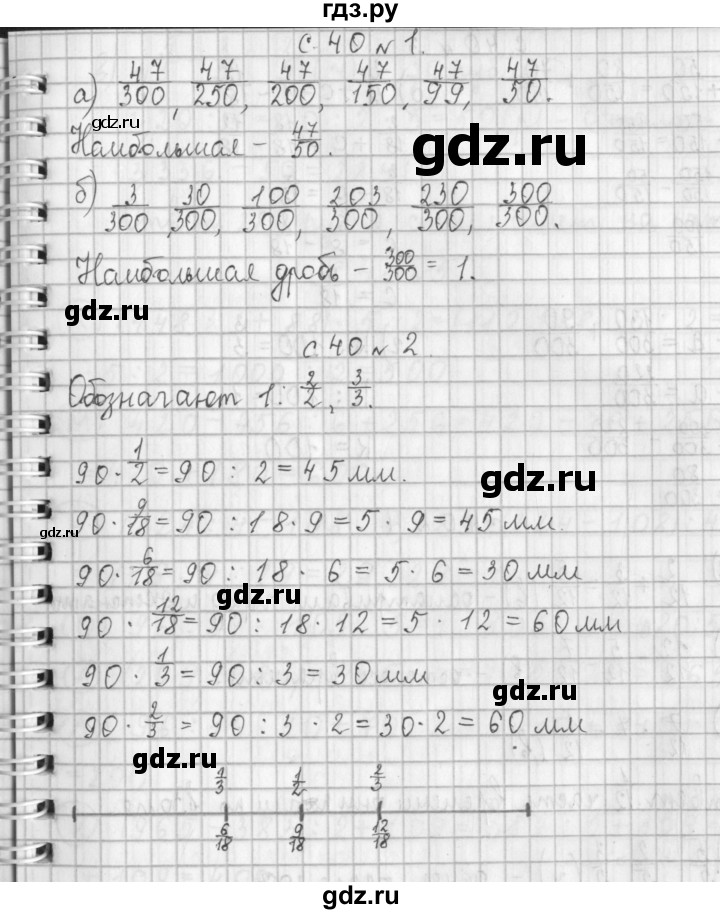 гдз.ру
с. 40 № 1.
а) 47/300, 47/250, 47/200, 47/150, 47/99, 47/50.
gdz.ru
Наибольшая – 47/50.
gdz.ru
б) 3/300, 30/300, 100/300, 203/300, 230/300, 300/300.
Наибольшая дробь – 300/300 = 1.
gdz.ru
с. 40 № 2.
Обозначают 1: 2/2, 3/3.
90 · 1/2 = 90 : 2 = 45 мм.
gdz.ru
90 · 9/18 = 90 : 18 · 9 = 5 · 9 = 45 мм
gdz.ru
90 · 6/18 = 90 : 18 · 6 = 5 · 6 = 30 мм
gdz.ru
90 · 12/18 = 90 : 18 · 12 = 5 · 12 = 60 мм
90 · 1/3 = 90 : 3 = 30 мм
gdz.ru
90 · 2/3 = 90 : 3 · 2 = 30 · 2 = 60 мм
gdz.ru
1/3 1/2 2/3
6/18 9/18 12/18
gdz.ru